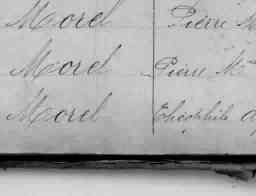 Morel Pierre M
Morel Pierre M
Morel Théophile